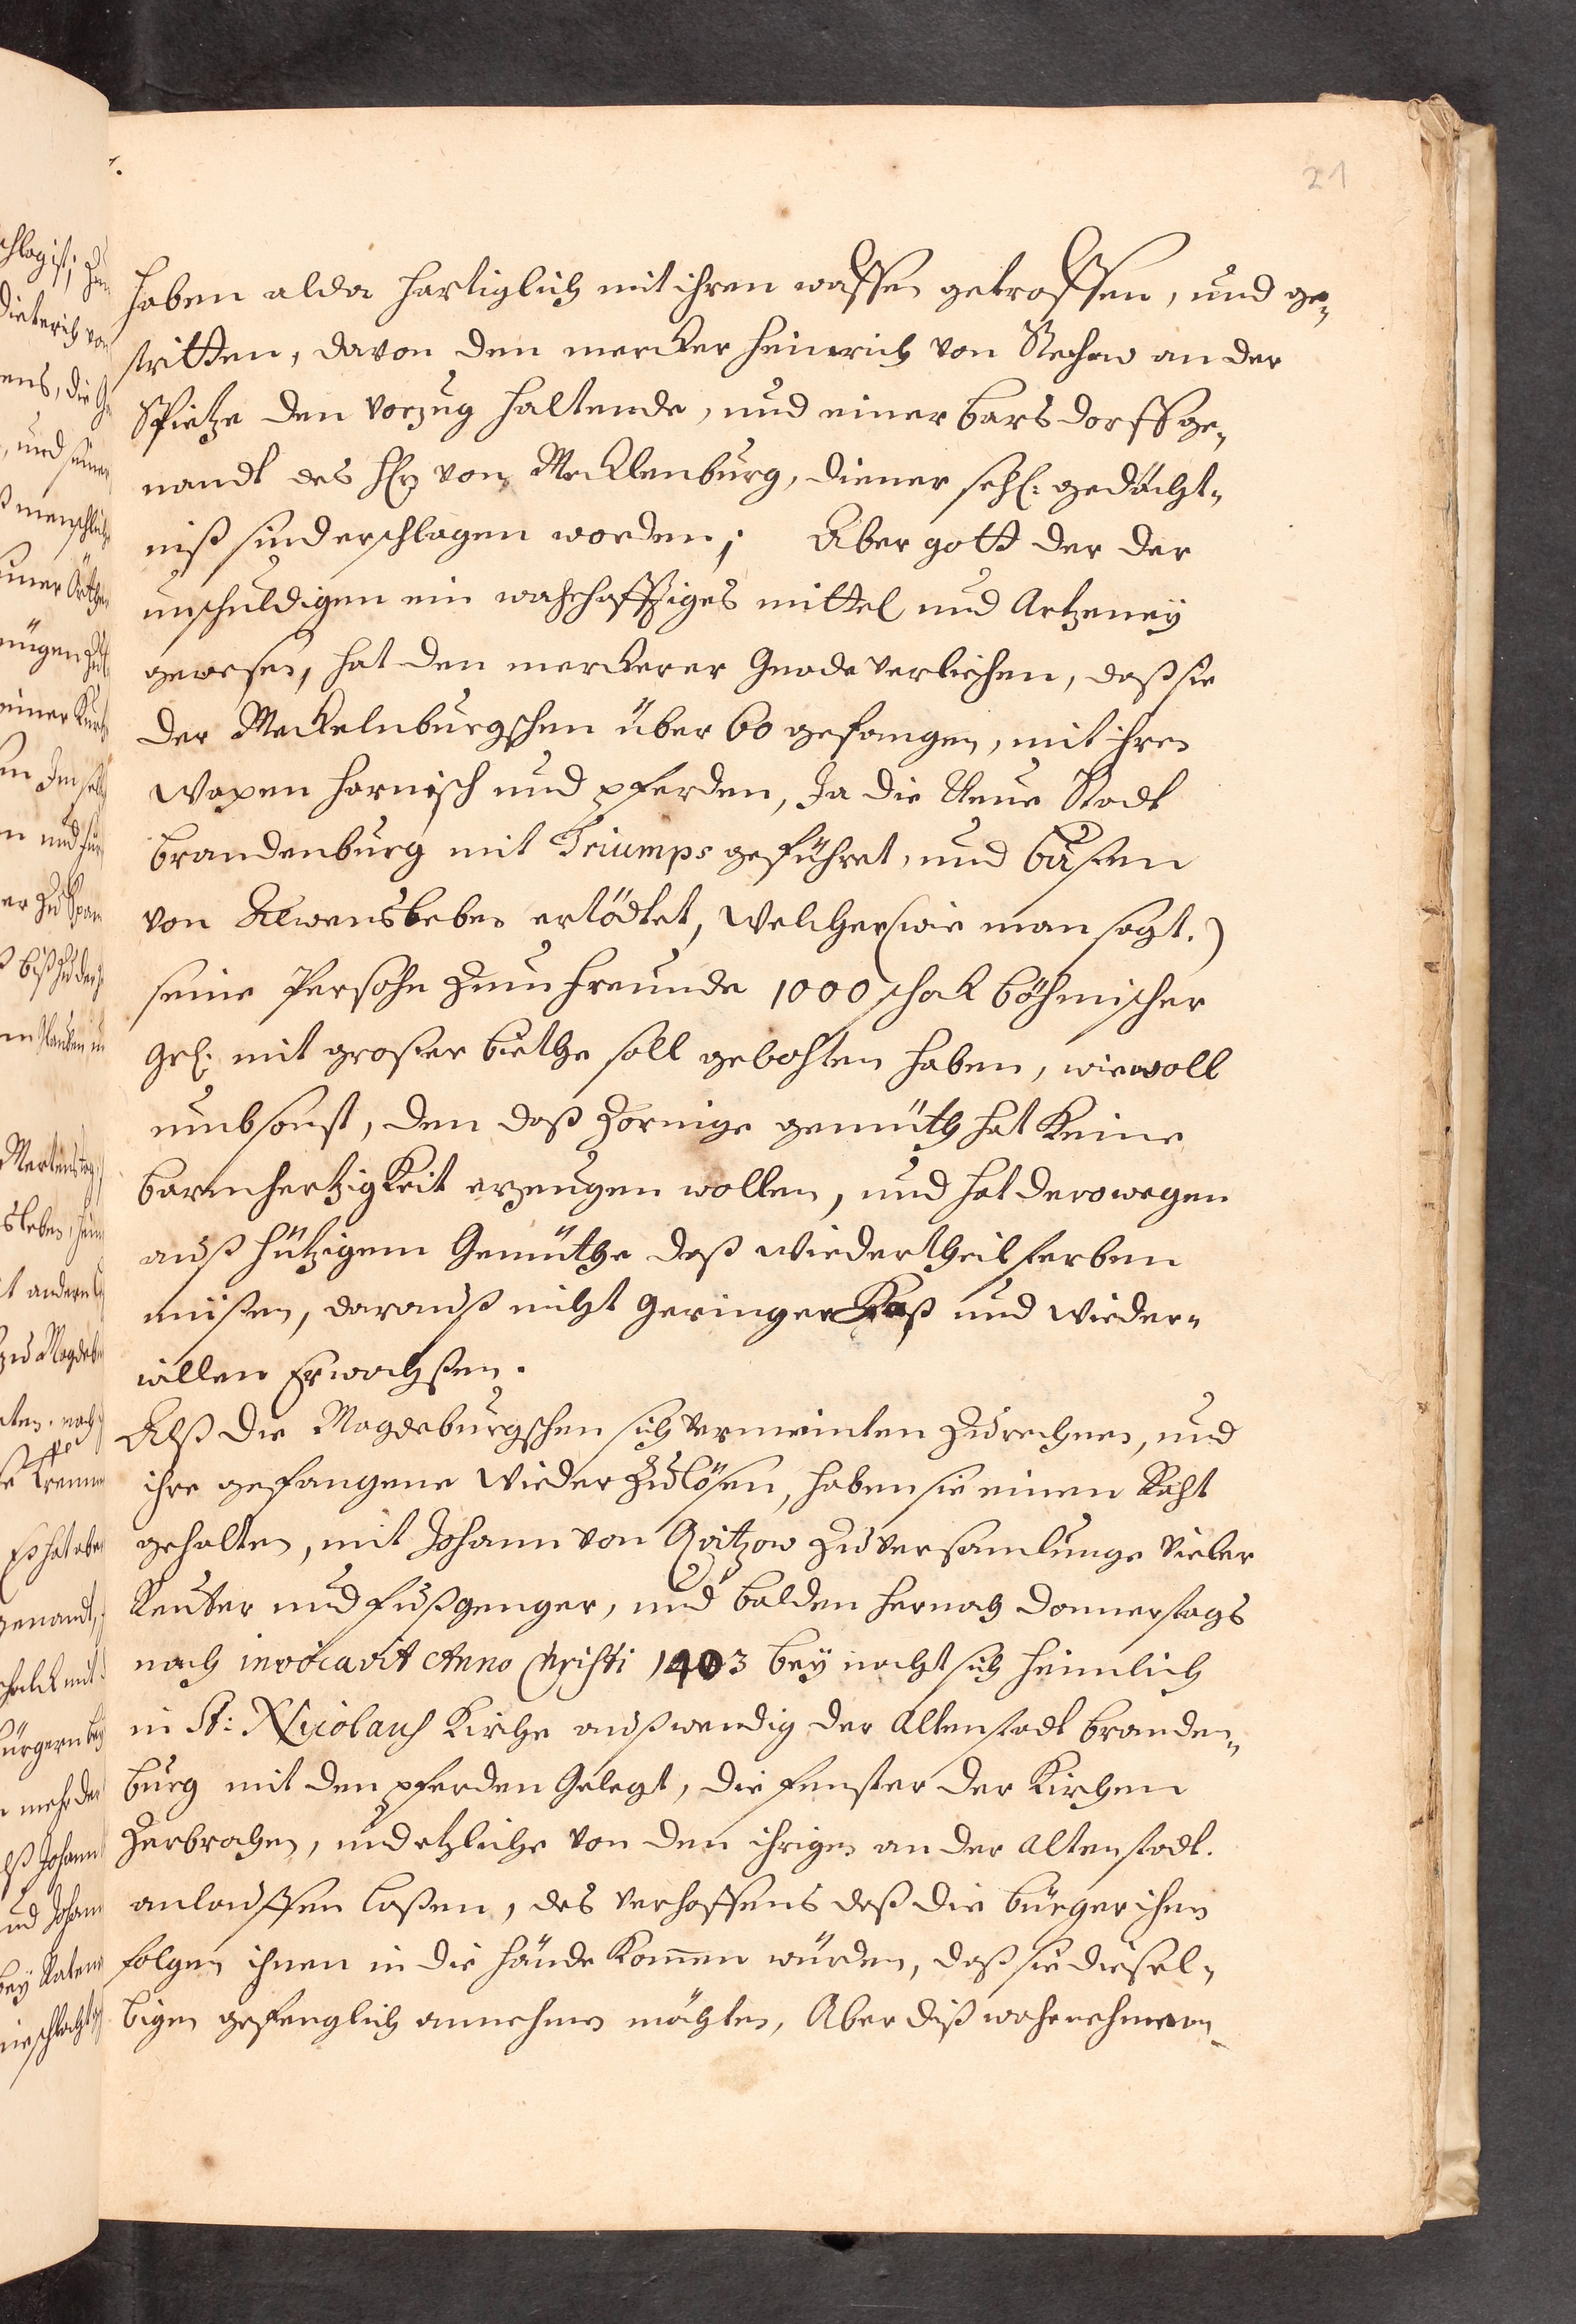 21
haben alda hartiglich mit ihren waffen getroffen, und ge„
stritten, davon den mercker Heinrich von Stechow an der
Spietze den vorzug haltende, und einer barsdorff ge„
nandt des H. von Mecklenburg, diener sehl: gedächt„
niß sind erschlagen worden; Aber gott der der
unschuldigen ein wahrhafftiges mittel und Artzeney
gewesen, hat den merckerer Gnade verliehen, daß sie
der Meckelnburgschen über 60 gefangen, mit ihren
Wapen harnisch und pferden, Ja die Neue Stadt
brandenburg mit Triumps geführet, und bußen
von Alwensleben ertödtet, welcher (wie man sagt.)
seine Persohn zum Freunde 1000 schock böhmischer
Grl: mit großer biethe soll gebohten haben, wiewoll
umbsonst, den daß zornige gemüth hat keine
barmhertzigkeit erzeugen wollen, und hat derowegen
auß hützigem Gemüthe daß wiedertheil sterben
müßen, darauß nicht geringer Haß und wieder„
willen Erwachßen.
Alß die Magdeburgschen sich vermeinten zu rechnen, und
ihre gefangene wieder zu lösen, haben sie einen Raht
gehalten, mit Johann von Qvitzow zu versamlunge vieler
Reuter und fußgenger, und balden hernach donnerstags
nach invocavit Anno Christi 1403 bey nacht sich heimlich
in St: Nicolaus Kirche außwendig der Altenstadt branden„
burg mit den pferden Gelegt, die fenster der Kirchen
zerbrochen, und etzliche von den ihrigen an der Altenstadt.
anlauffen laßen, des verhoffens daß die bürger ihnen
folgen ihnen in die hände kommen würden, daß sie diesel„
bigen gefenglich annehmen möchten, Aber diß wahrnehmen